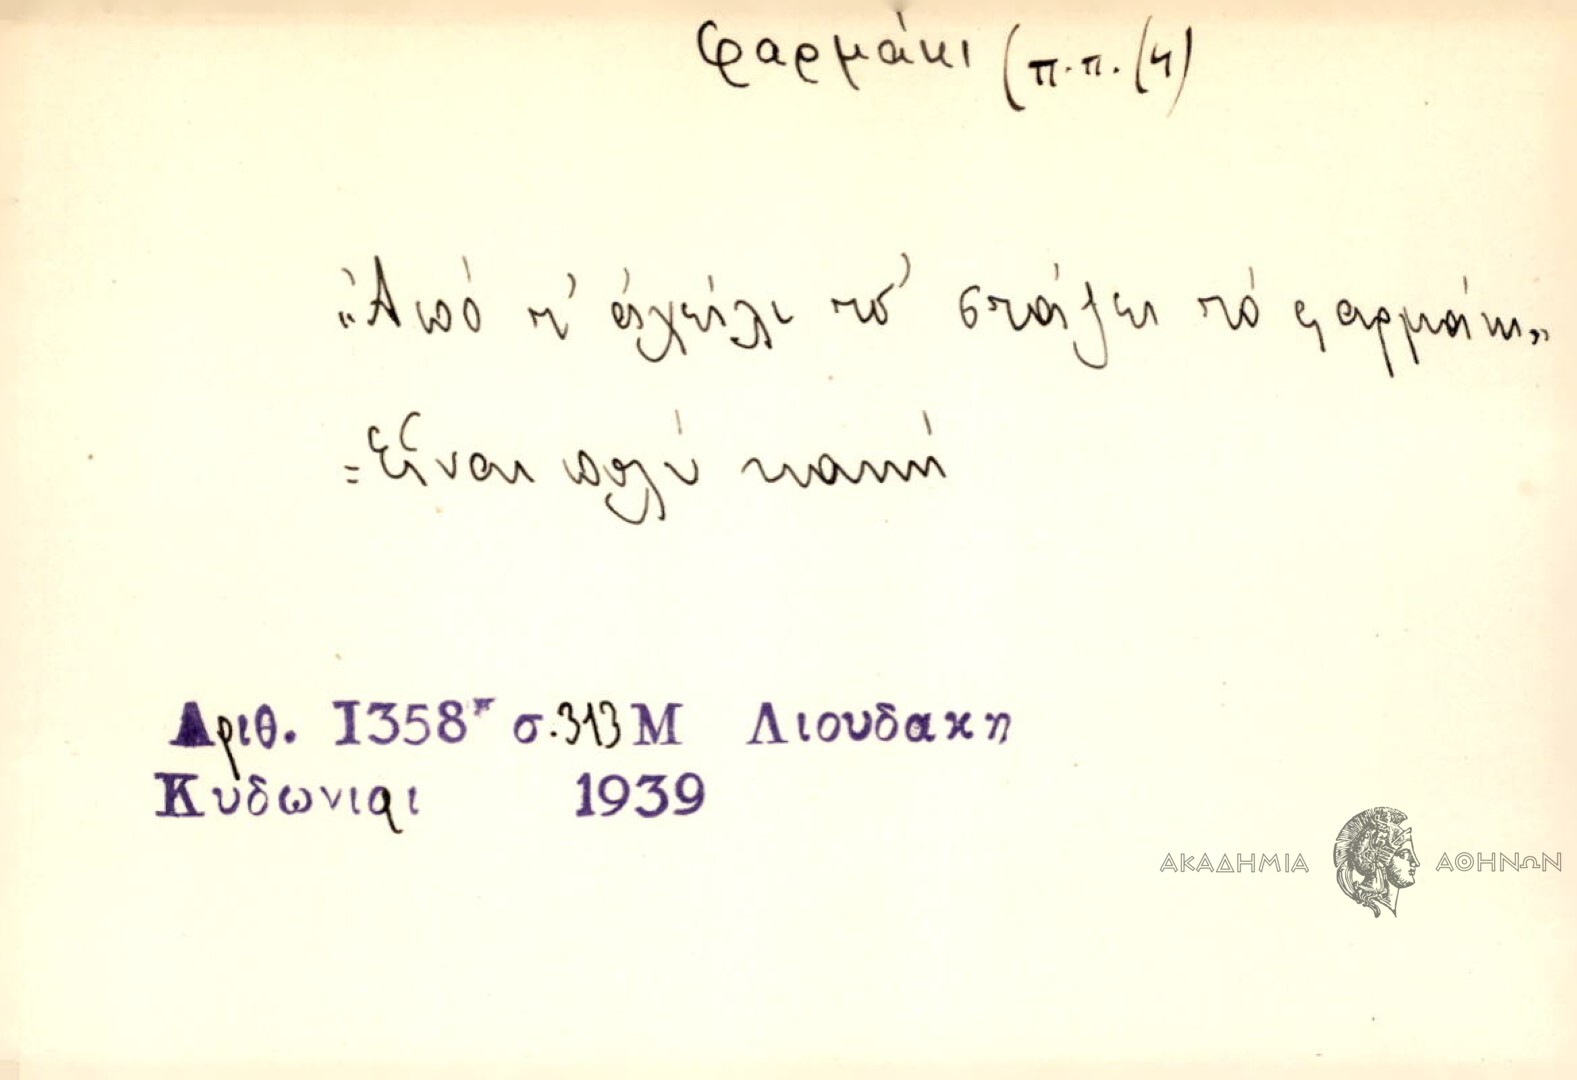 φαρμάκι (π.π. (4)
„Ἀπό τ' ἀχείλι τσ' στάζει τό φαρμάκι„
=Εἶναι πολύ κακή
Αριθ. 1358 σ.313 Μ Λιουδακη
Κυδωνιαι 1939
ΑΚΑΔΗΜΙΑ ΑΘΗΝΩΝ